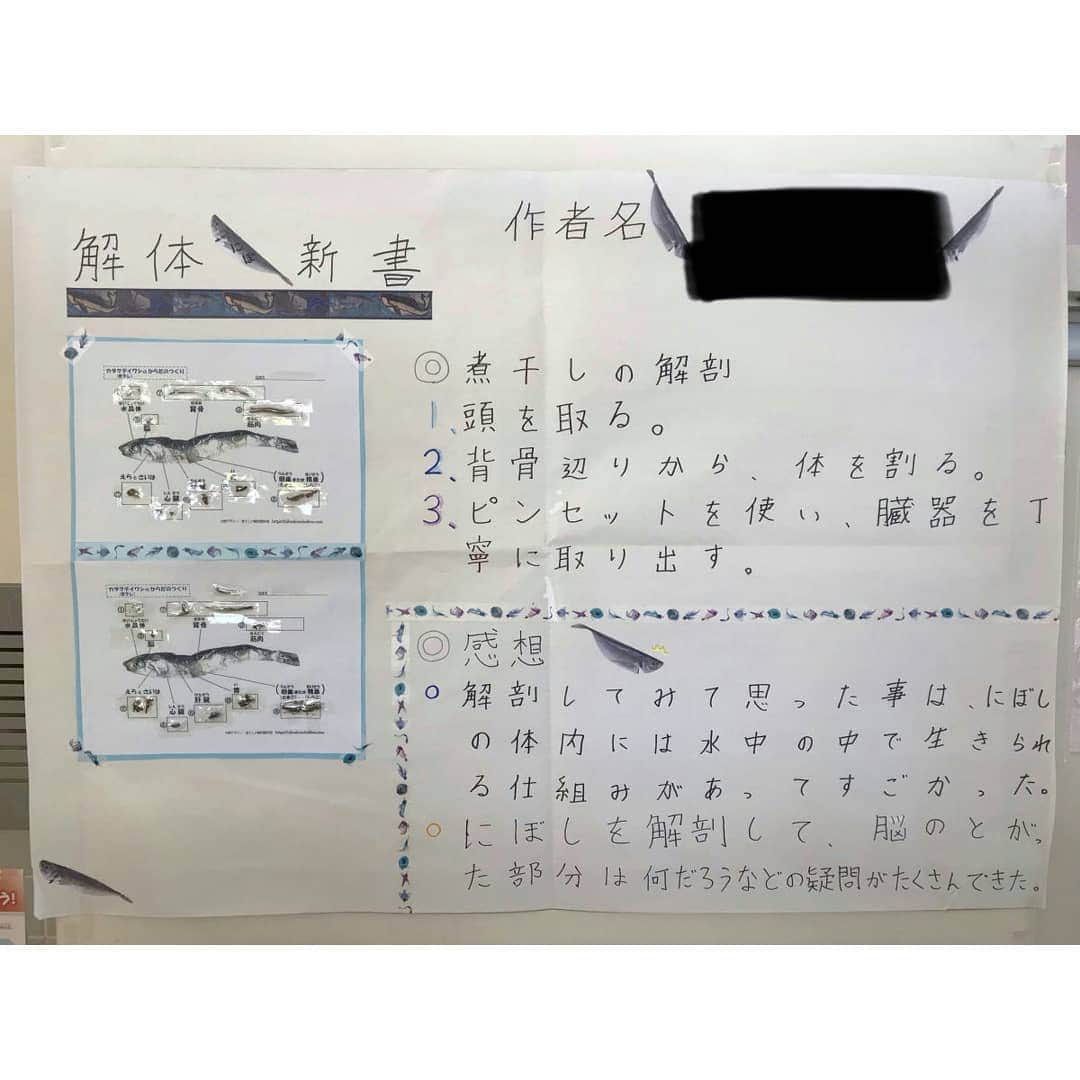 解体新書
作者名
カタクチイワシのからだのつくり
(煮干し)
水晶体
背骨
筋肉
脳
えらとさいは
心臓
カタクチイワシのからだのつくり
(煮干し)
水晶体
背骨
筋肉
脳
えらとさいは
心臓
肝臓
胃
◎煮干しの解剖
1、頭を取る。
2、背骨辺りから、体を割る。
3、ピンセットを使い、臓器を丁
寧に取り出す。
◎感想
○解剖してみて思った事は、にぼし
の体内には水中の中で生きられ
る仕組みがあってすごかった。
○にぼしを解剖して、脳のとがっ
た部分は何だろうなどの疑問がたくさんできた。
う!